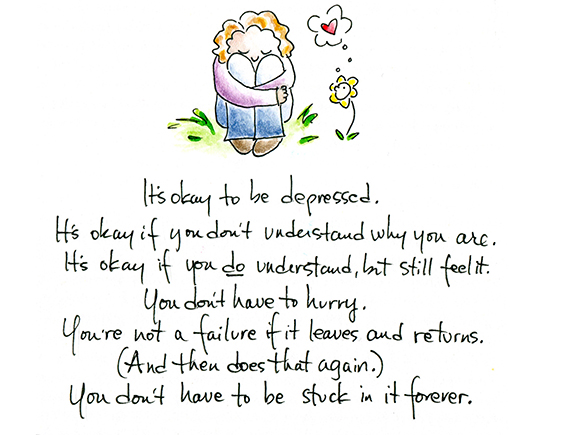 It's okay to be depressed.
It's okay if you don't understand why you are.
It's okay if you do understand, but still feel it.
You don't have to hurry.
You're not a failure if it leaves and returns.
(And then does that again.)
You don't have to be stuck in it forever.